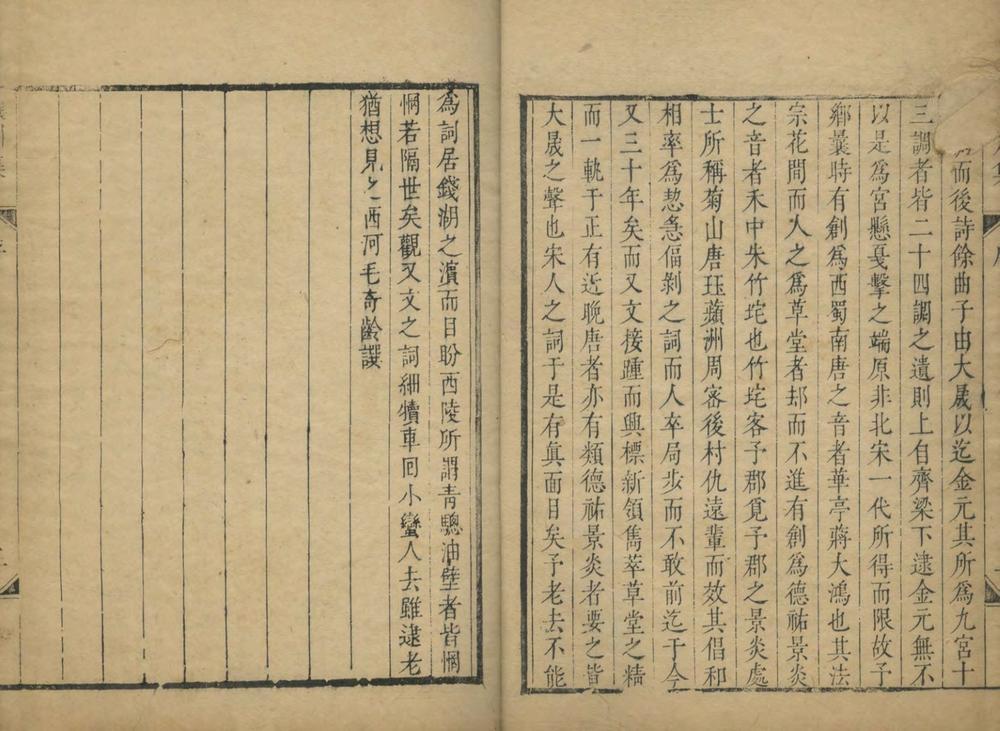 而後詩餘曲子由大晟以迄金元其所為九宮十
三調者皆二十四調之遺則上自齊梁下逮金元無不
以是為宮懸戛擊之端原非北宋一代所得而限故予
鄉曩時有創為西蜀南唐之音者華亭蔣大鴻也其法
宗花間而人之為草堂者却而不進有創為德祐景炎
之音者禾中朱竹垞也竹垞客予郡覓予郡之景炎處
士所稱菊山唐珏蘋洲周密後村仇遠輩而效其倡和
相率為愸惫偪剝之詞而人卒局步而不敢前迄于今
又三十年矣而又文接踵而興標新領雋萃草堂之精
而一軌于正有近晚唐者亦有類德祐景炎者要之皆
大晟之聲也宋人之詞于是有真面目矣予老去不能
為詞居錢湖之濱而目盼西陵所謂青驄油壁者皆惘
惘若隔世矣觀又文之詞細犢車回小蠻人去雖逮老
猶想見〻西河毛奇齡譔